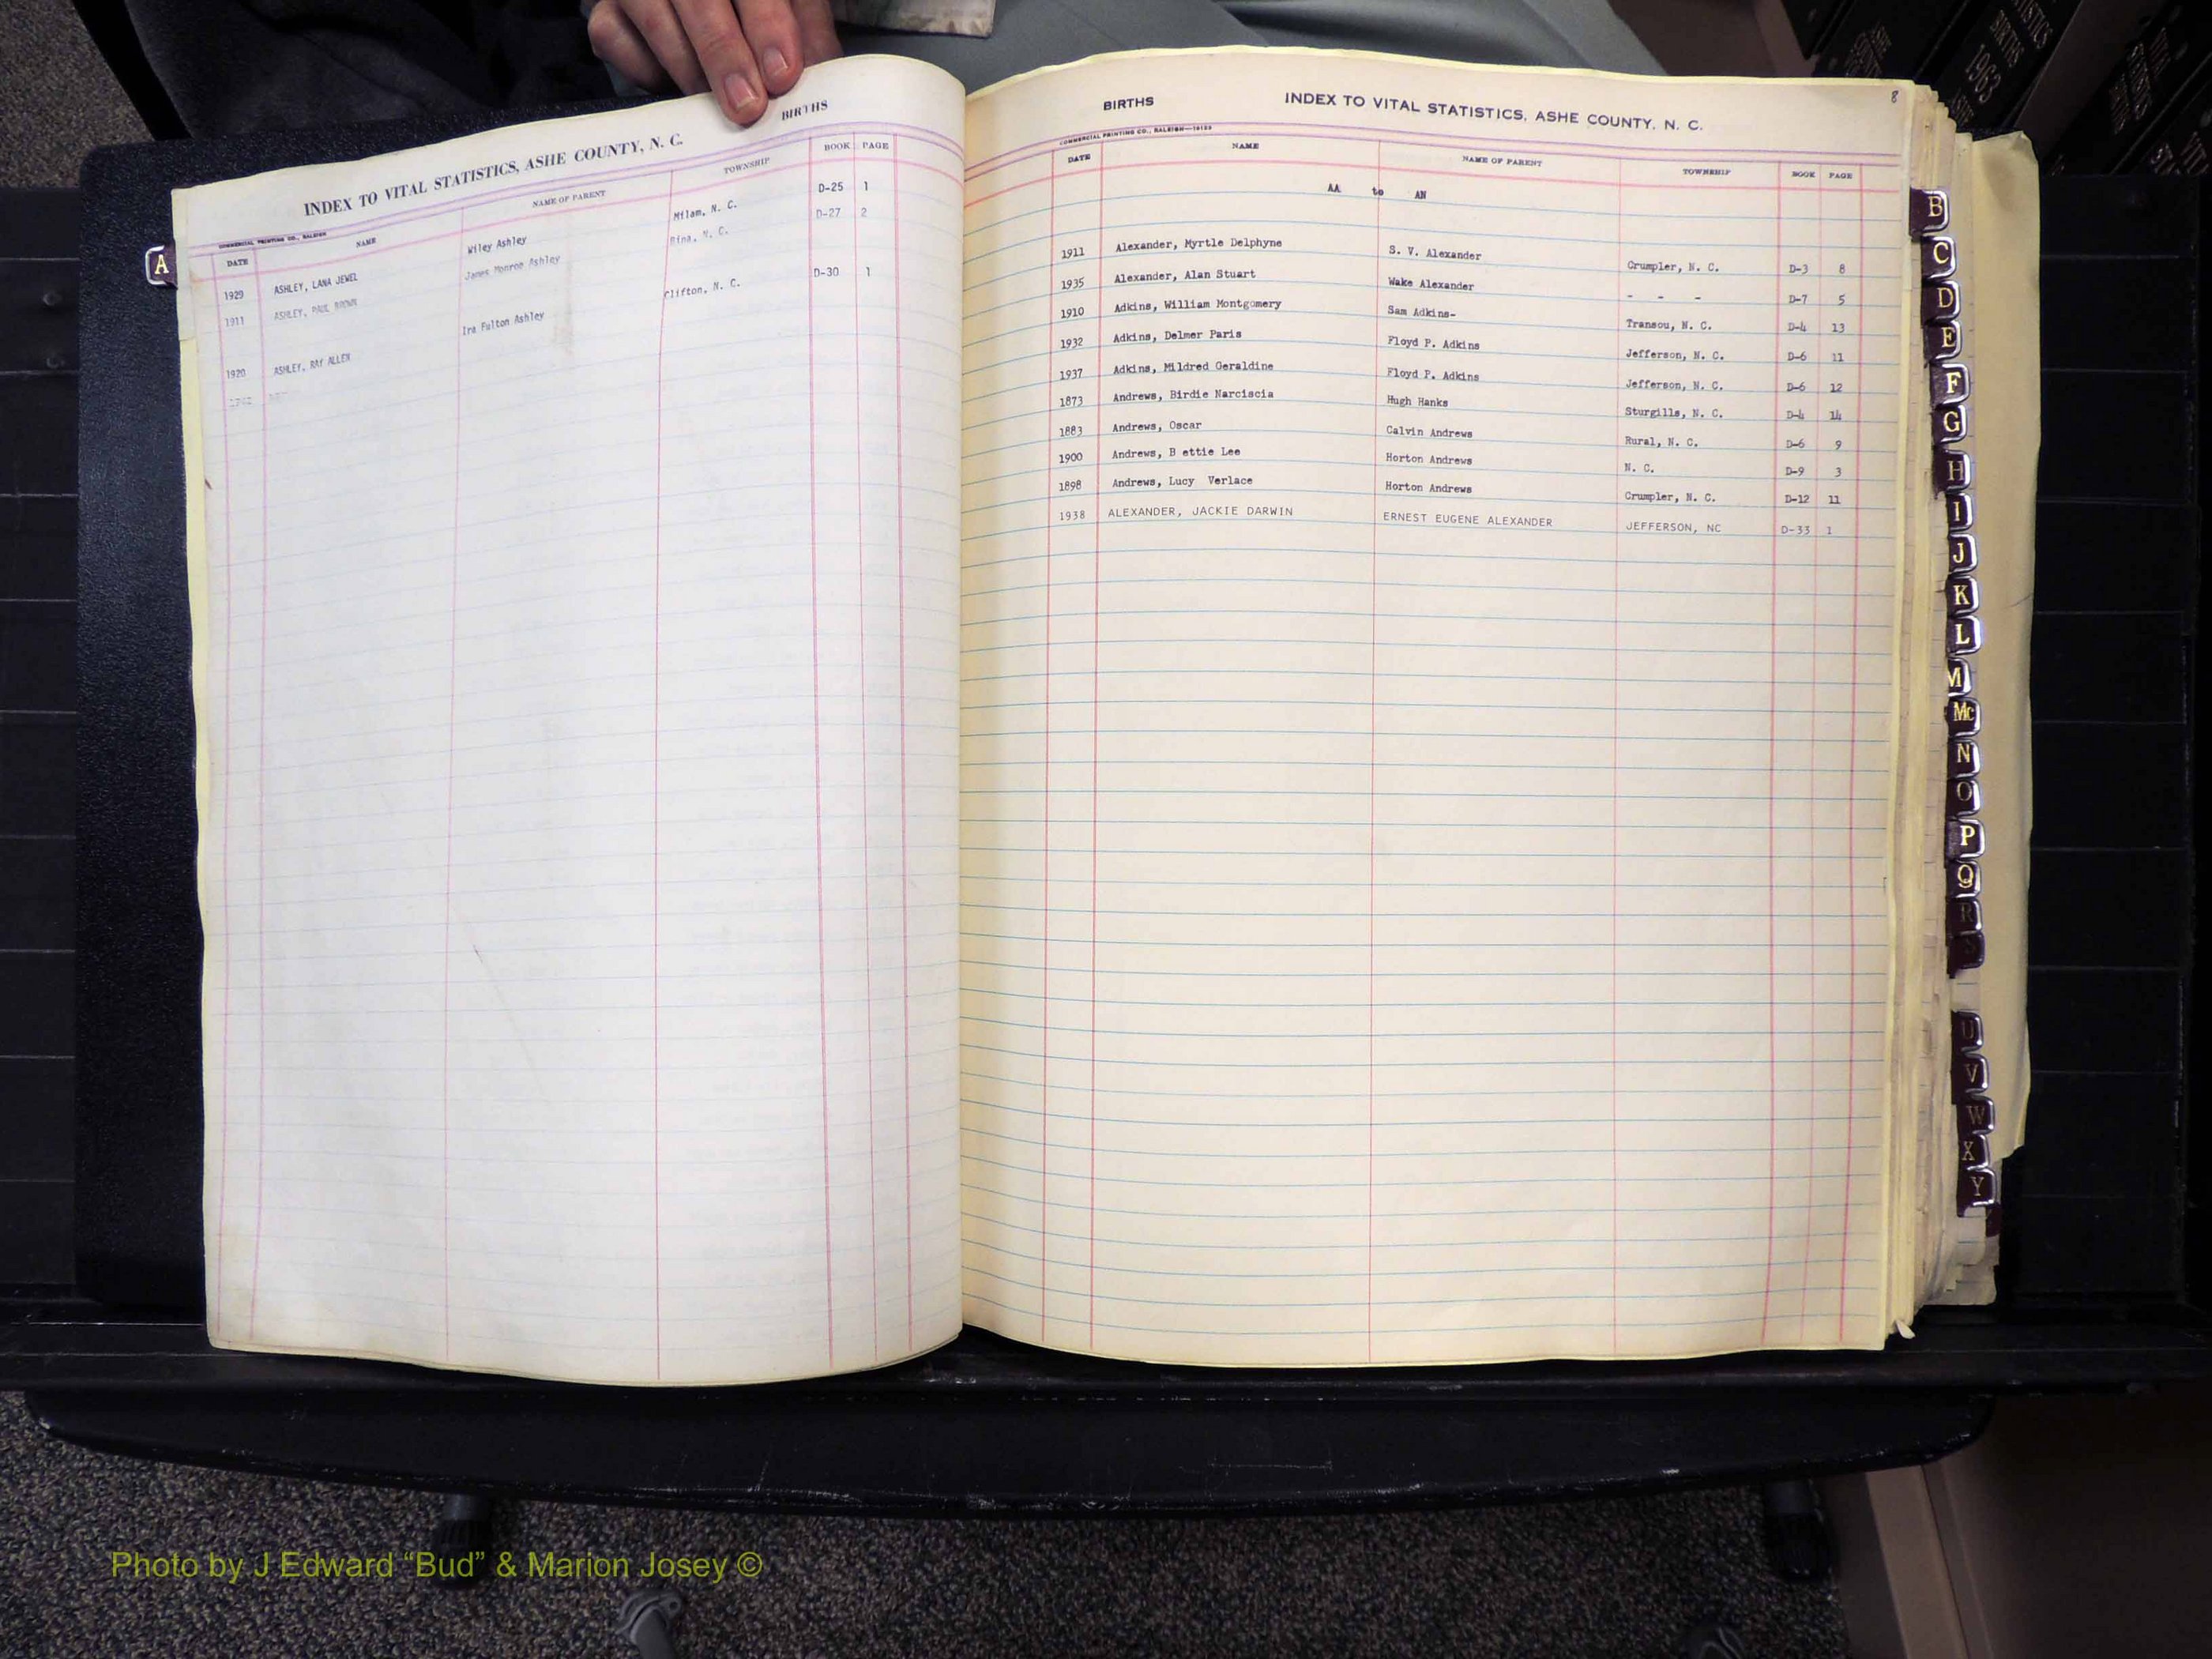 INDEX TO VITAL STATISTICS, ASHE COUNTY, N. C. BIRTHS
COMMERCIAL PRINTING CO., RALEIGH
DATE NAME NAME OF PARENT TOWNSHIP BOOK PAGE
1929 ASHLEY, LANA JEWEL Wiley Ashley Milam, N. C. D-25 1
1911 ASHLEY, PAUL BROWN James Monroe Ashley Bina, N. C. D-27 2
1920 ASHLEY, RAY ALLEN Ira Fulton Ashley Clifton, N. C. D-30 1
A
BIRTHS INDEX TO VITAL STATISTICS, ASHE COUNTY, N. C. 8
COMMERCIAL PRINTING CO., RALEIGH
DATE NAME NAME OF PARENT TOWNSHIP BOOK PAGE
AA to AN
1911 Alexander, Myrtle Delphyne S. V. Alexander Crumpler, N. C. D-3 8
1935 Alexander, Alan Stuart Wake Alexander - - - D-7 5
1910 Adkins, William Montgomery Sam Adkins- Transou, N. C. D-4 13
1932 Adkins, Delmer Paris Floyd P. Adkins Jefferson, N. C. D-6 11
1937 Adkins, Mildred Geraldine Floyd P. Adkins Jefferson, N. C. D-6 12
1873 Andrews, Birdie Narciscia Hugh Hanks Sturgills, N. C. D-4 14
1883 Andrews, Oscar Calvin Andrews Rural, N. C. D-6 9
1900 Andrews, B ettie Lee Horton Andrews N. C. D-9 3
1898 Andrews, Lucy Verlace Horton Andrews Crumpler, N. C. D-12 11
1938 ALEXANDER, JACKIE DARWIN ERNEST EUGENE ALEXANDER JEFFERSON, NC D-33 1
B
C
D
E
F
G
H
I
J
K
L
M
Mc
N
O
P
Q
R
S
U
V
W
X
Y
BIRTHS
1963
Photo by J Edward “Bud” & Marion Josey ©